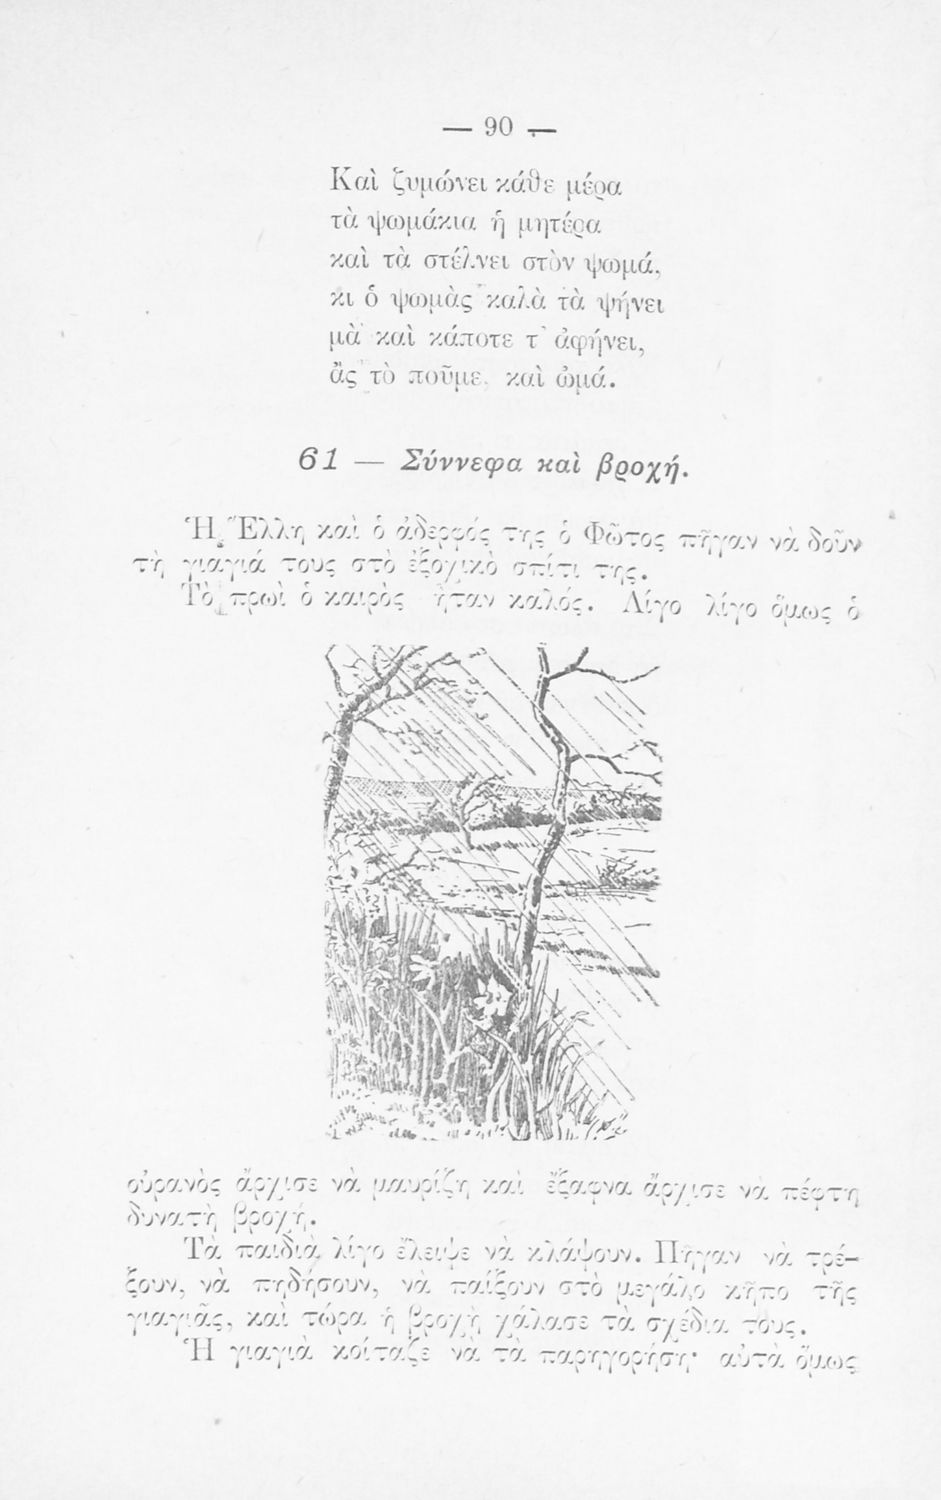 — 90 —
Καὶ ζυμώνει κάθε μέρα
τὰ ψωμάκια ἡ μητέρα
καὶ τὰ στέλνει στὸν ψωμά,
κι ὁ ψωμὰς καλὰ τὰ ψήνει
μὰ καὶ κάποτε τ᾿ ἀφήνει,
ἂς τὸ ποῦμε, καὶ ὠμά.
61 — Σύννεφα καὶ βροχή.
Ἡ Ἕλλη καὶ ὁ ἀδερφός της ὁ Φῶτος πῆγαν νὰ δοῦν
τὴ γιαγιά τους στὸ ἐξοχικὸ σπίτι της.
Τὸ πρωὶ ὁ καιρὸς ἦταν καλός. Λίγο λίγο ὅμως ὁ
οὐρανὸς ἄρχισε νὰ μαυρίζη καὶ ἔξαφνα ἄρχισε νὰ πέφτη
δυνατὴ βροχή.
Τὰ παιδιὰ λίγο ἔλειψε νὰ κλάψουν. Πῆγαν νὰ τρέ-
ξουν, νὰ πηδήσουν, νὰ παίξουν στὸ μεγάλο κῆπο τῆς
γιαγιᾶς, καὶ τώρα ἡ βροχὴ χάλασε τὰ σχέδια τους.
Ἡ γιαγιὰ κοίταζε νὰ τὰ παρηγορήση· αὐτὰ ὅμως